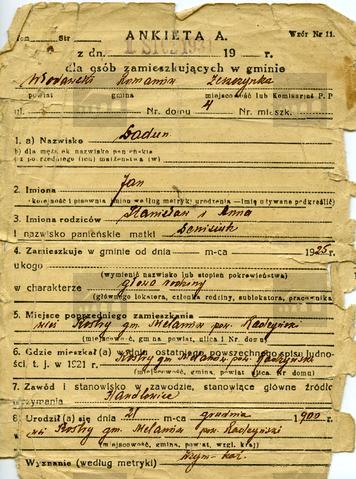 Tom Str ANKIETA A. Wzór Nr 11.
z dn. 1 STY 1931 19 r.
dla osób zamieszkujących w gminie
Włodawski Romanów
powiat gmina miejscowość lub Komisariat P. P.
ul. Nr. domu 4 Nr. mieszk.
1. a) Nazwisko Badun
b) dla mężatek nazwisko panieńskie
(z poprzedniego (ich) małżeństwa (w)
2. Imiona Jan
(kolejność i pisownia imion według metryki urodzenia — imię używane podkreślić)
3. Imiona rodziców Stanisław i Anna
i nazwisko panieńskie matki
4. Zamieszkuje w gminie od dnia m-ca 1925 r.
u kogo
(wymienić nazwisko lub stopień pokrewieństwa)
w charakterze głowa rodziny
(głównego lokatora, członka rodziny, sublokatora, pracownika
5. Miejsce poprzedniego zamieszkania
wieś gm. pow. Radzyń
(miejscowość, gmina, powiat, ulica i Nr. domu)
6. Gdzie mieszkał(a) ostatniego powszechnego spisu ludno-
ści, t. j. w 1921 r. gm. pow. Radzyński
(miejscowość, gmina, powiat, ulica, Nr. domu)
7. Zawód i stanowisko w zawodzie, stanowiące główne źródło
utrzymania
8. Urodził(a) się dnia 21 m-ca grudnia 1900 r.
wieś gm. pow. Radzyński
(miejscowość, gmina, powiat, wzgl. kraj)
Wyznanie (według metryki) rzym-kat.